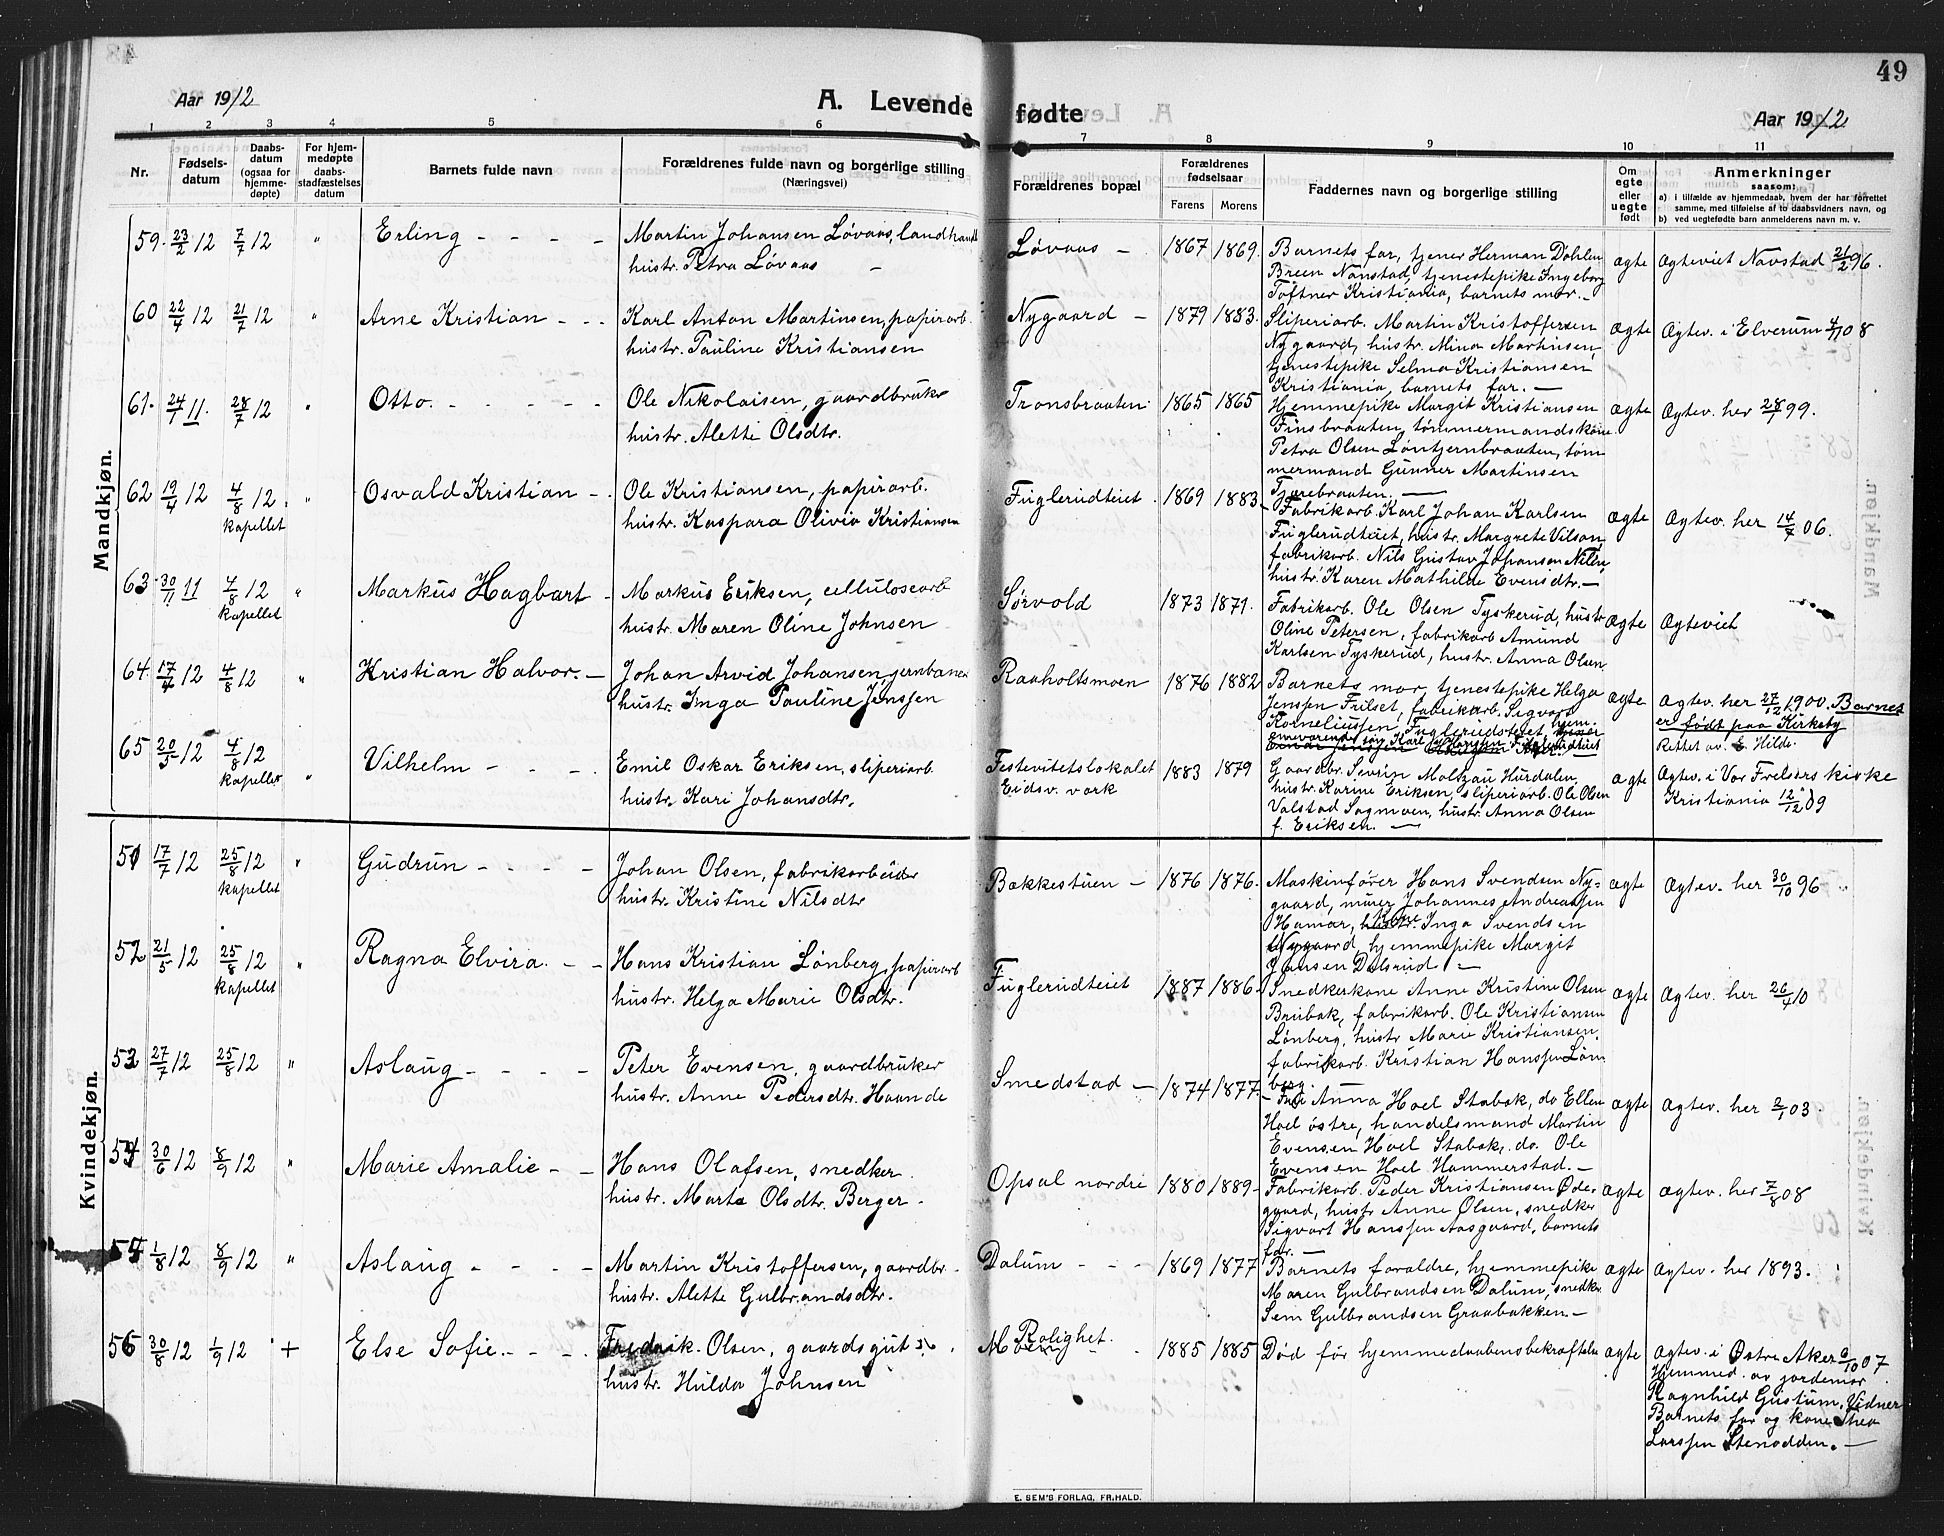 49
Aar 1912
A. Levende fødte
Aar 1912
1 2 3 4 5 6 7 8 9 10 11
Nr.
Fødsels-
datum
Daabs-
datum
(ogsaa for
hjemme-
døpte)
For hjem-
medøpte
daabs-
stadfæstelses
datum
Barnets fulde navn
Forældrenes fulde navn og borgerlige stilling
(Næringsvei)
Forældrenes bopæl
Forældrenes
fødselsaar
Farens Morens
Faddernes navn og borgerlige stilling
Om
egte
eller
uegte
født
Anmerkninger
saasom:
a) i tilfælde av hjemmedaab, hvem der har forrettet
samme, med tilføielse af to daabsvidners navn, og
b) ved uegtefødte barn anmelderens navn m. v.
Mandkjøn.
59. 23/2 12 7/7 12 " Erling
Martin Johansen Løvaas, landhandl
hustr. Petra Løvaas
Løvaas 1867 1869.
Barnets far, tjener Herman Dahlen
Breen Nanstad, tjenestepike Ingeborg
Toftner Kristiania, barnets mor.
ægte
Ægteviet Navstad 21/2 96.
60 22/4 12 21/7 12 " Arne Kristian
Karl Anton Martinsen, papirarb.
hustr. Pauline Kristiansen
Nygaard 1879 1883.
Sliperiarb. Martin Kristoffersen
Nygaard, hustr. Mina Martinsen,
tjenestepike Selma Kristiansen
Kristiania, barnets far.
ægte
Ægtev. i Elverum 4/10 08
61. 24/1 11. 28/7 12 " Otto
Ole Nikolaisen, gaardbruker
hustr. Alette Olsdtr.
Tronsbraaten 1865 1865
Hjemmepike Margit Kristiansen
Finsbraaten, tømmermandskone
Petra Olsen Løntjernbraaten, tøm
mermand Gunner Martinsen
Tjerebraaten.
ægte
Ægtev. her 28/7 99.
62 19/4 12 4/8 12. kapellet " Osvald Kristian
Ole Kristiansen, papirarb.
hustr. Kaspara Olivia Kristiansen
Fuglerudteiet 1869 1883
Fabrikarb. Karl Johan Karlsen
Fuglerudteiet, hustr. Margrete Vilson,
fabrikarb. Nils Gustav Johansen Nilen
hustr. Karen Mathilde Evensdtr.
ægte
Ægtev. her 14/7 06.
63 30/11 11 4/8 12 kapellet " Markus Hagbart
Markus Eriksen, cellulosearb
hustr. Maren Oline Johnsen
Sørvold 1873 1871.
Fabrikarb. Ole Olsen Tyskerud, hustr
Oline Petersen, fabrikarb Amund
Karlsen Tyskerud, hustr. Anna Olsen.
ægte
Ægteviet
64. 17/4 12 4/8 12 " Kristian Halvor.
Johan Arvid Johansen, jernbanea
hustr. Inga Pauline Jenssen
Raaholtsmoen 1876 1882
Barnets mor, tjenestepike Helga
Jenssen Frilset, fabrikarb. Sigvart
Korneliussen, Fuglerudsteiet, hjem.
ægte
Ægtev. her 27/12 1900. Barnet
er født paa Kirkeby
Rettet av E. Hilde.
65 20/5 12 4/8 12 kapellet " Vilhelm
Emil Oskar Eriksen, sliperiarb.
hustr. Kari Johansdtr.
Festevitetslokalet
Eidsv. værk
1883 1879
Gaardbr. Severin Moltzau Hurdalen,
hustr. Karine Eriksen, sliperiarb. Ole Olsen
Valstad Sagmoen, hustr. Anna Olsen
f. Eriksen.
ægte
Ægtev. i Vor Frelsers kirke
Kristiania 12/12 09
Kvindekjøn.
51 17/7 12 25/8 12 kapellet " Gudrun
Johan Olsen, fabrikarbeider
hustr. Kristine Nilsdtr
Bakkestuen 1876 1876.
Maskinfører Hans Svendsen Ny-
gaard, murer Johannes Andreassen
Hamar, kone Inga Svendsen
Nygaard, hjemmepike Margit
Hansen Dalsrud.
ægte
Ægtev. her 30/10 96
52 21/5 12 25/8 12 kapellet " Ragna Elvira.
Hans Kristian Lønberg, papirarb
hustr. Helga Marie Olsdtr.
Fuglerudteiet 1887 1886.
Snedkerkone Anne Kristine Olsen
Brubak, fabrikarb. Ole Kristiansen
Lønberg, hustr Marie Kristiansen,
fabrikarb. Kristian Hanssen Løn
berg.
ægte
Ægtev. her 26/4 10
53 27/7 12 25/8 12 " Aslaug
Peter Evensen, gaardbruker
hustr. Anne Pedersdtr. Haande
Smedstad 1874 1877.
Anna Hoel Stabæk, do Ellen
Hoel østre, handelsmand Martin
Evensen Hoel Stabæk, do. Ole
Evensen Hoel Hammerstad.
ægte
Ægtev. her 2/1 03.
54 30/6 12 8/9 12 " Marie Amalie
Hans Olafsen, snedker.
hustr. Marta Olsdtr. Berger
Opsal nordre 1880 1889
Fabrikarb. Peder Kristiansen Øde-
gaard, hustr Anne Olsen, snedker
Sigvart Hanssen Aasgaard, barnets
far.
ægte
Ægtev. her 7/8 08
55 1/8 12 8/9 12 " Aslaug
Martin Kristoffersen, gaardbr.
hustr. Alette Gulbrandsdtr.
Dalum 1869 1877
Barnets foraldre, hjemmepike
Maren Gulbrandsen Dalum, snedker
Sem Gulbrandsen Graabakken.
ægte
Ægtev. her 1893.
56 30/8 12 1/9 12 + Else Sofie.
Fredrik Olsen, gaardsgut
hustr. Hulda Johnsen
Rolighet.
1885 1885
Død før hjemmedaabens bekræftelse
ægte
Ægtev. i Østre Aker 6/10 07
Hjemmed. av jordemor
Ragnhild Gustum. Vidner
Barnets far og kone Thea
Larssen Stenodden.
E. SEM'S FORLAG, FR.HALD.